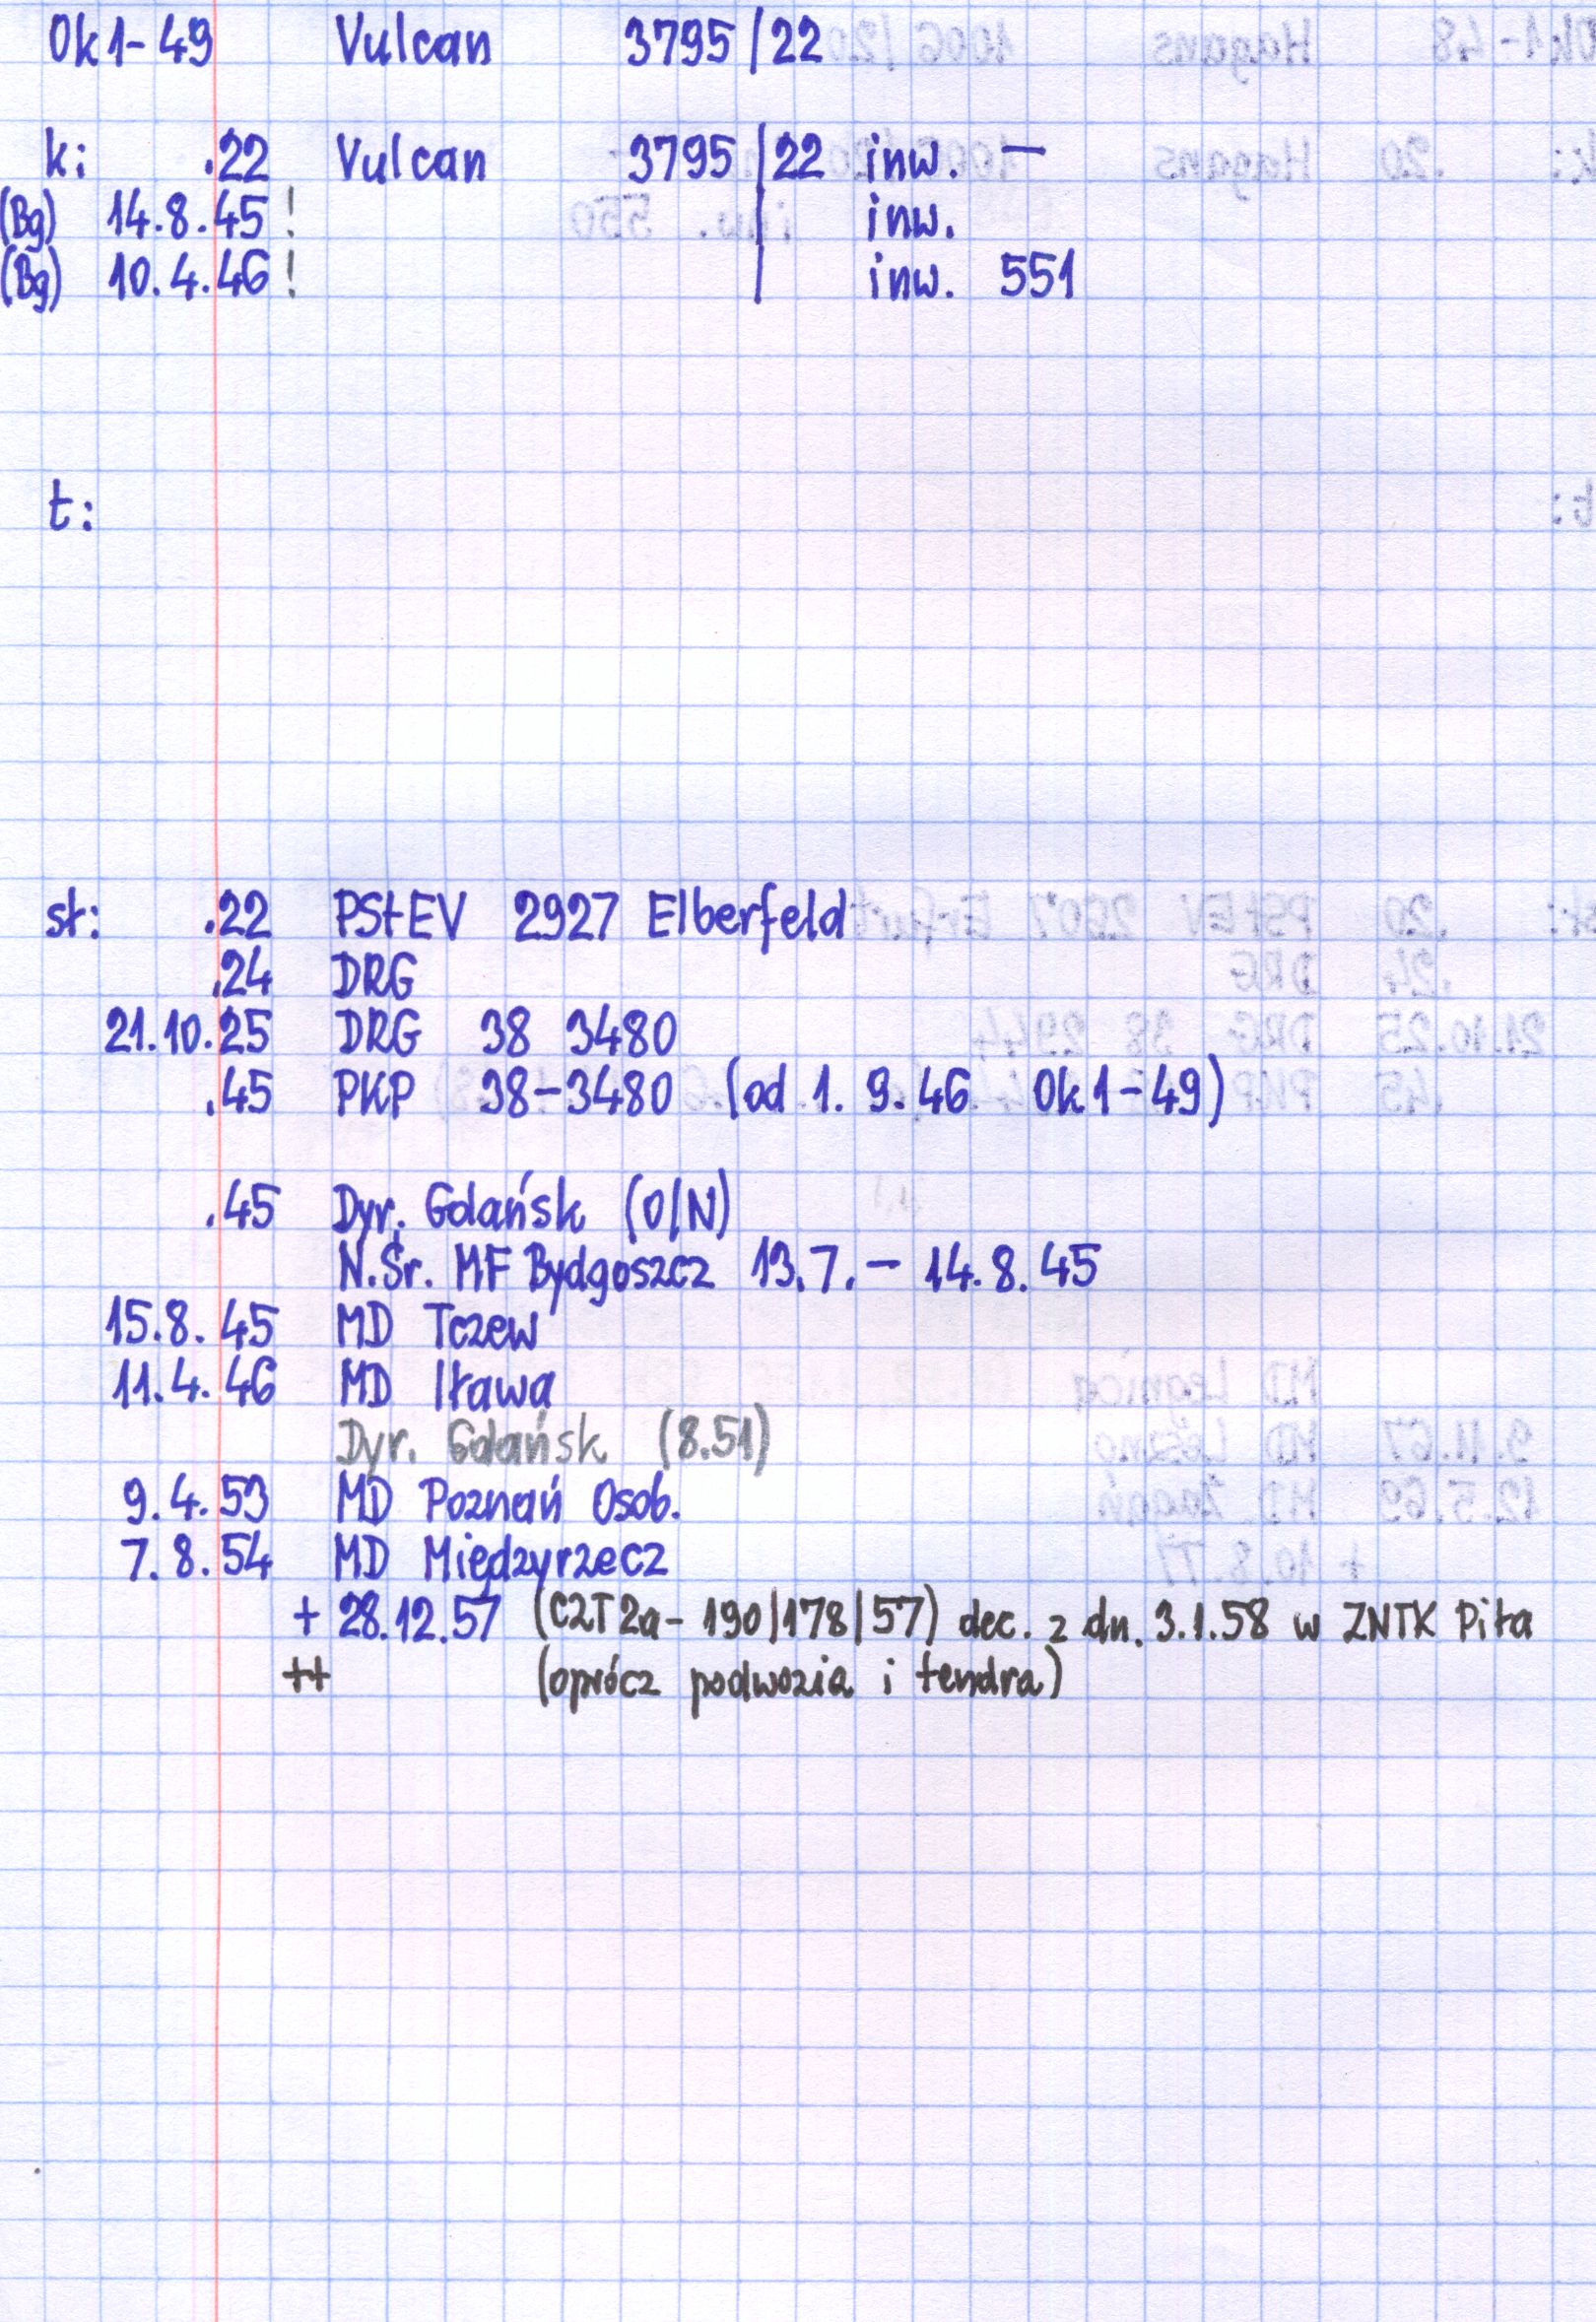 Ok1-49 Vulcan 3795/22
k: .22 Vulcan 3795/22 inw. —
(Bg) 14.8.45! | inw.
(Bg) 10.4.46! | inw. 551
t:
st: .22 PStEV 2927 Elberfeld
.24 DRG
21.10.25 DRG 38 3480
.45 PKP 38-3480 (od 1.9.46 Ok1-49)
.45 Dyr. Gdańsk (O/N)
N.Śr. MF Bydgoszcz 13.7.- 14.8.45
15.8.45 MD Tczew
11.4.46 MD Iława
Dyr. Gdańsk (8.51)
9.4.53 MD Poznań Osob.
7.8.54 MD Międzyrzecz
+ 28.12.57 (CZT2a-190/178/57) dec. z dn. 3.1.58 w ZNTK Piła
++ (oprócz podwozia i tendra)